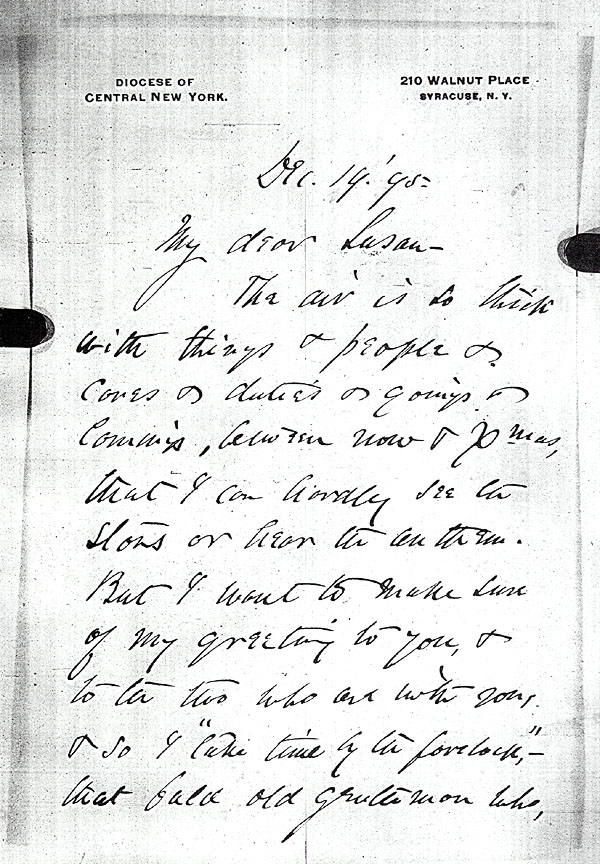 DIOCESE OF
CENTRAL NEW YORK.
210 WALNUT PLACE
SYRACUSE, N. Y.
Dec. 19. '95-
My dear Susan-
The air is so thick
with things & people &
cares & duties & goings &
comings, between now & Xmas,
that I can hardly see the
stars or hear the anthem.
But I want to make sure
of my greeting to you, &
to the two who are with you,
& so I "take time by the forelock,"-
that bald old gentleman who,